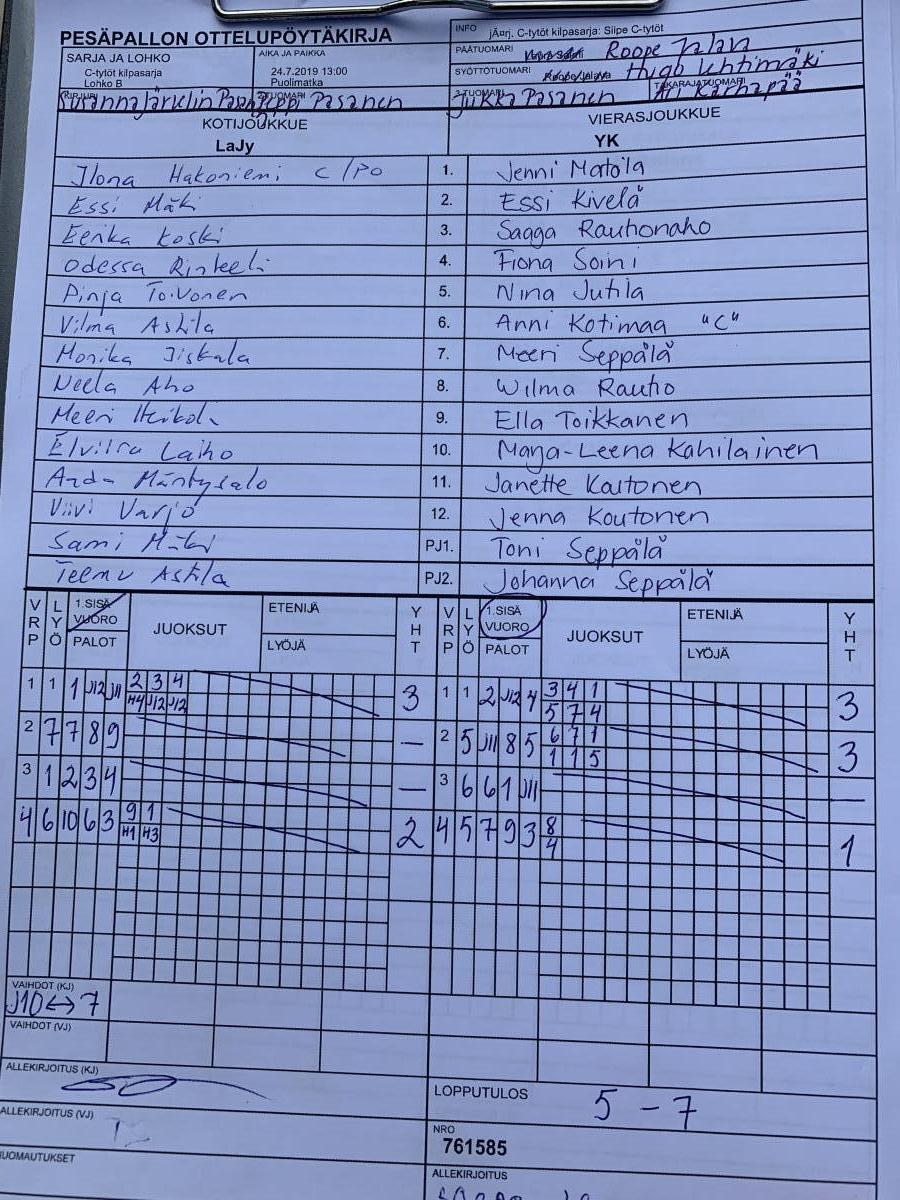 PESÄPALLON OTTELUPÖYTÄKIRJA
INFO jÄ¤rj. C-tytöt kilpasarja: Siipe C-tytöt
SARJA JA LOHKO
C-tytöt kilpasarja
Lohko B
AIKA JA PAIKKA
24.7.2019 13:00
Puolimatka
PÄÄTUOMARI Roope
SYÖTTÖTUOMARI Hugo Lehtimäki
KIRJURI Susanna
2-TUOMARI Pasanen
3-TUOMARI Jukka Pasanen
TAKARAJATUOMARI Ari Karhapää
KOTIJOUKKUE
LaJy
VIERASJOUKKUE
YK
Ilona Hakoniemi C/PO 1. Jenni Mattila
Essi Mäki 2. Essi Kivelä
Eerika Koski 3. Saaga Rauhonaho
Odessa Rinkeeli 4. Fiona Soini
Pinja Toivonen 5. Nina Jutila
Vilma Askila 6. Anni Kotimaa "C"
Monika Iiskala 7. Meeri Seppälä
Neela Aho 8. Wilma Rautio
Meeri 9. Ella Toikkanen
Elviira Laiho 10. Marja-Leena Kahilainen
Mäntysalo 11. Janette
Viivi Varjo 12. Jenna Koutonen
Sami Mäki PJ1. Toni Seppälä
Teemu Askila PJ2. Johanna Seppälä
VRP LYÖ 1.SISÄ VUORO PALOT JUOKSUT ETENIJÄ LYÖJÄ YHT VRP LYÖ 1.SISÄ VUORO PALOT JUOKSUT ETENIJÄ LYÖJÄ YHT
1 1 1 J12 J11 2 3 4 3 1 1 2 J12 4 3 4 1 3
H4 J12 J12 5 7 4
2 7 7 8 9 — 2 5 J11 8 5 6 7 1 3
1 1 5
3 1 2 3 4 — 3 6 6 1 J11 —
4 6 10 6 3 9 1 2 4 5 7 9 3 8 1
H1 H3 4
VAIHDOT (KJ)
J10↔7
VAIHDOT (VJ)
ALLEKIRJOITUS (KJ)
LOPPUTULOS 5 - 7
ALLEKIRJOITUS (VJ)
NRO
761585
HUOMAUTUKSET
ALLEKIRJOITUS